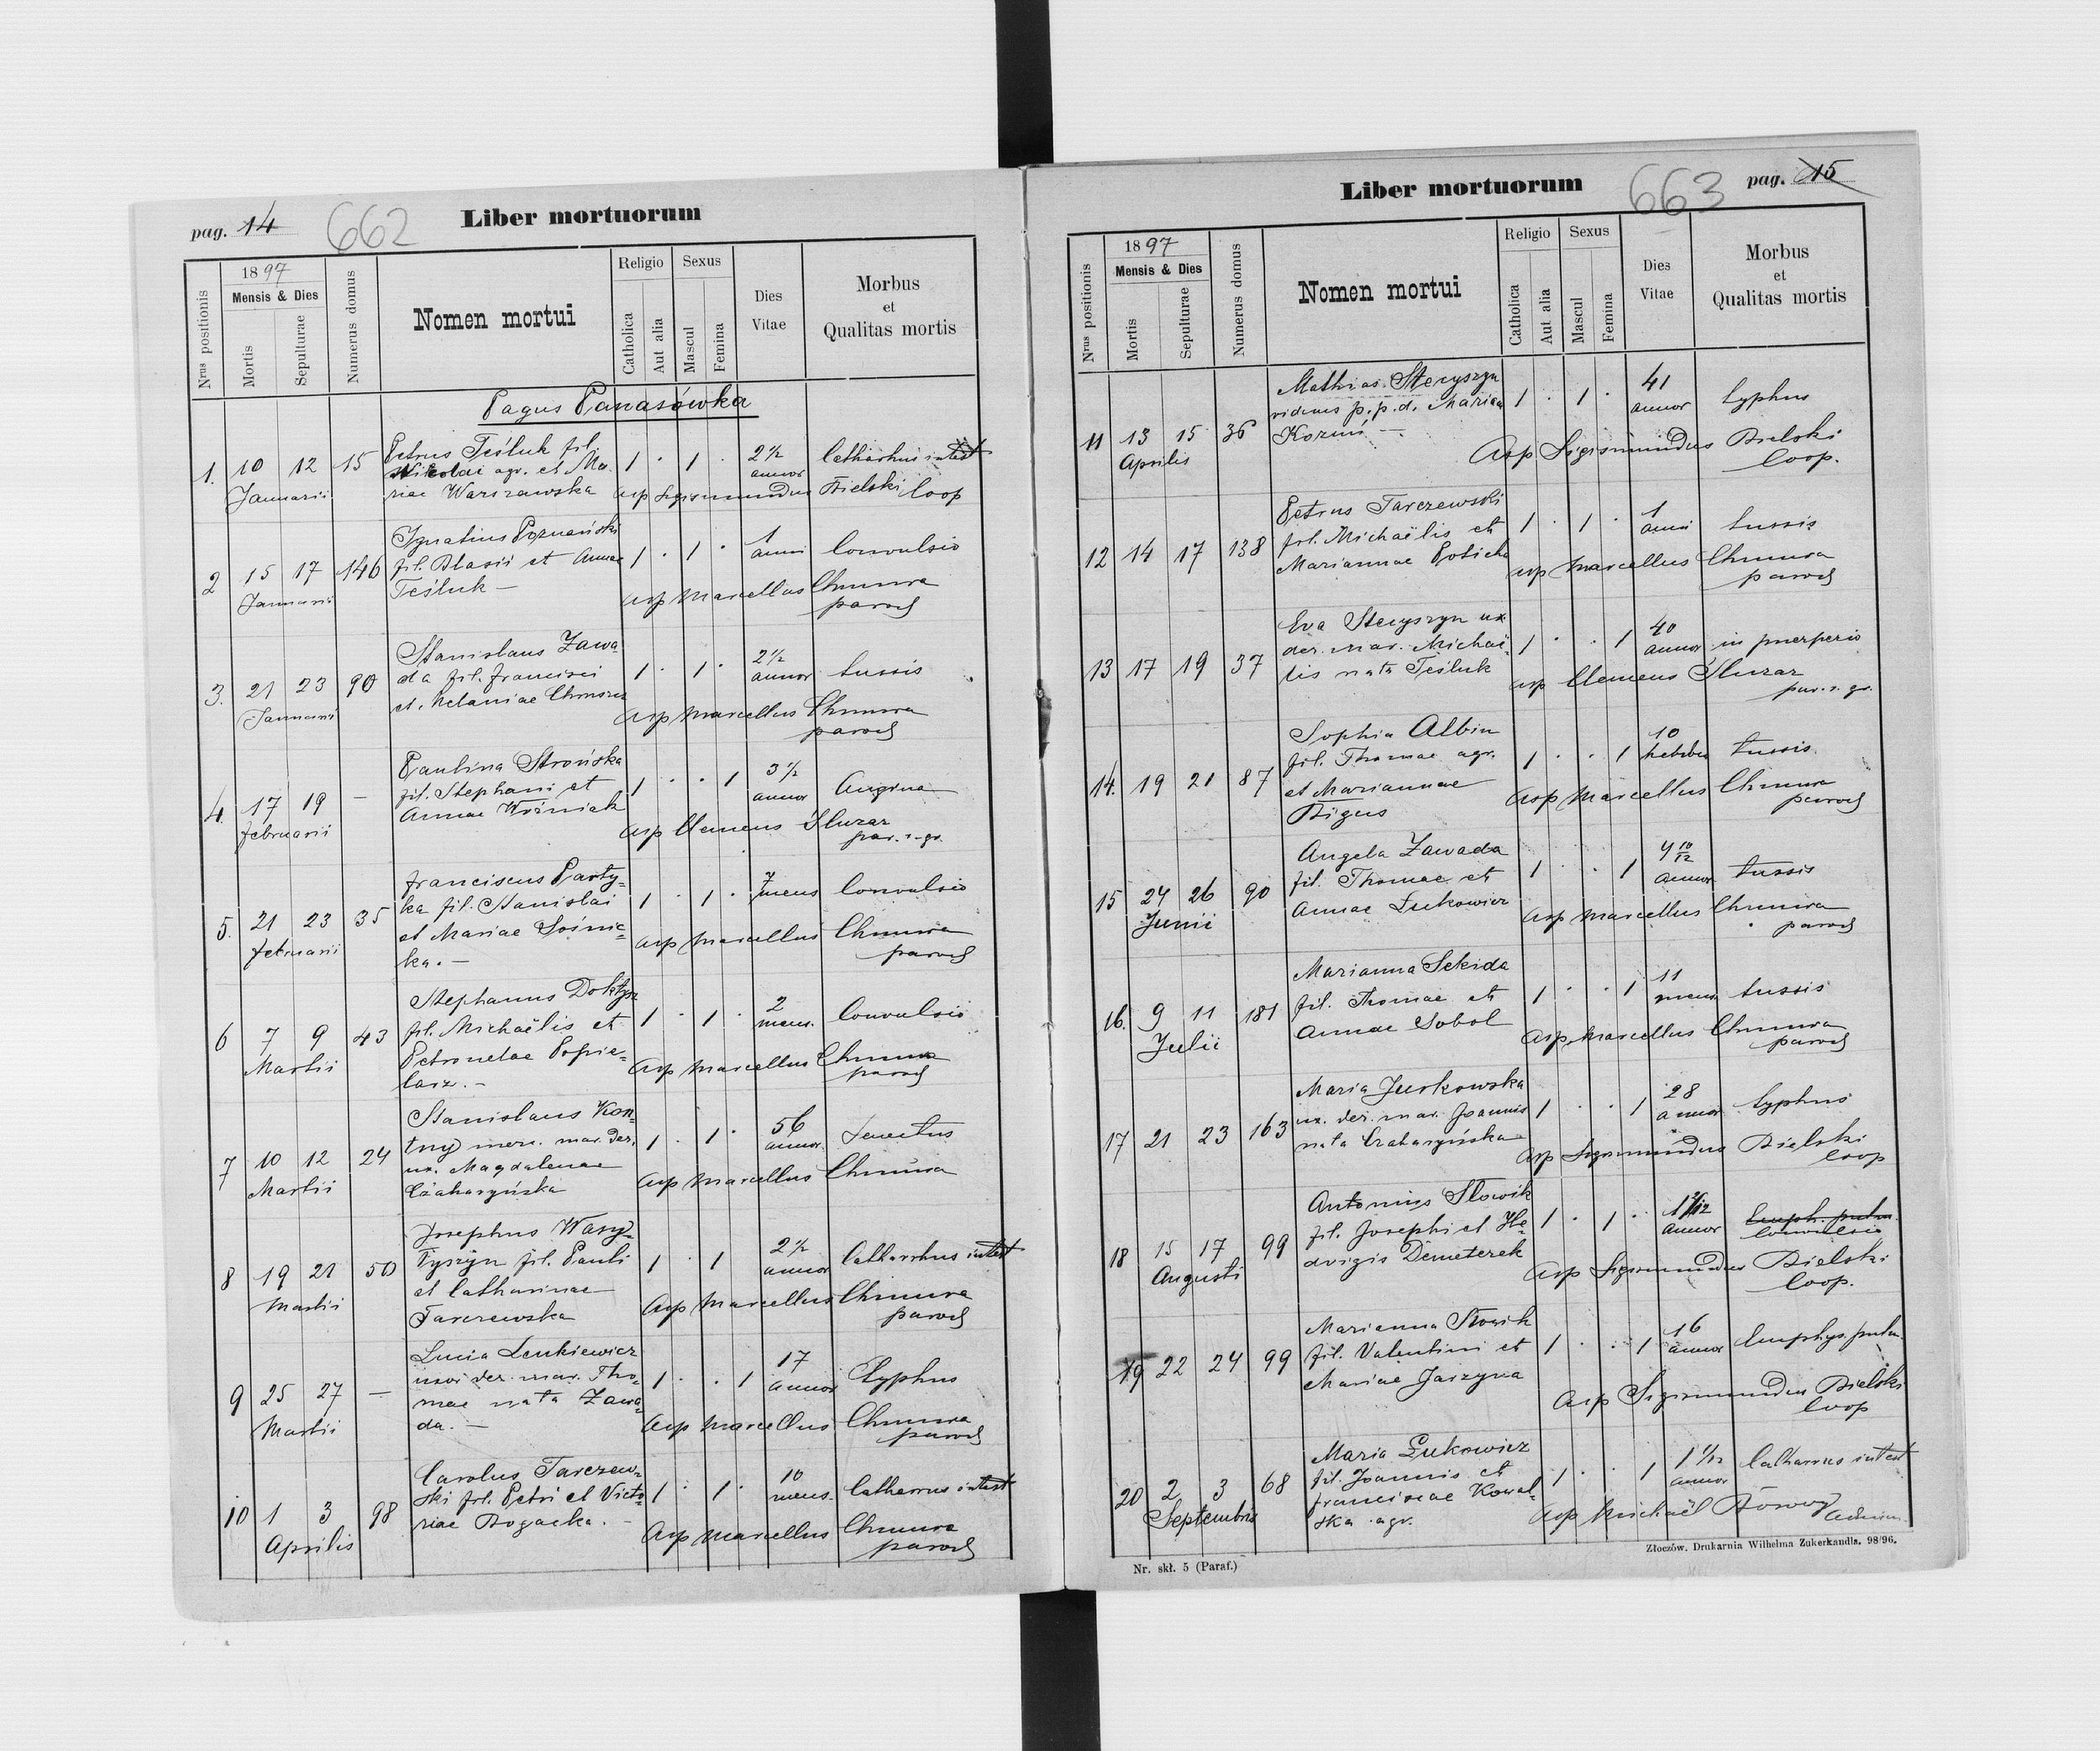 pag. 14 662 Liber mortuorum
Nrus positionis
1897
Mensis & Dies
Mortis
Sepulturae
Numerus domus
Nomen mortui
Religio
Catholica
Aut alia
Sexus
Mascul
Femina
Dies
Vitae
Morbus
et
Qualitas mortis
Pagus Panasówka
1. 10 12 15 Petrus Teśluk fil. 1 . 1 . 2 1/2 Catharhus intest
Januarii Nicolai agr. et Ma annor
riae Warszawska asp Sigismundus Bielski Coop
2 15 17 146 Ignatius Poznański 1 . 1 . 1 Convulsio
Januarii fil. Blasii et Annae anni
Teśluk – asp Marcellus Chmura
paroch
3. 21 23 90 Stanislaus Zawa 1 . 1 . 2 1/2 tussis
Januarii da fil. Francisci annor
et Melaniae asp Marcellus Chmura
paroch
4. 17 19 – Paulina Strońska 1 . . 1 3 1/2 Angina
februarii fil. Stephani et annor
Annae Woźniak asp Clemens Śluzar
par. r. gr.
5. 21 23 35 Franciscus Party= 1 . 1 . 7 Convulsio
februarii ka fil. Stanislai mens
et Mariae Sośnic= asp Marcellus Chmura
ka. – paroch
6 7 9 43 Stephanus 1 . 1 . 2 Convulsio
Martii fil. Michaëlis et mens.
Petronelae Popie= asp Marcellus Chmura
larz. – paroch
7 10 12 24 Stanislaus Kon= 1 . 1 . 56 Senectus
Martii tny merc. mar. der. annor.
ux. Magdalenae asp Marcellus Chmura
Czaharyńska
8 19 21 50 Josephus Wasy= 1 1 2 1/2 Catharrhus intest
Martii tyszyn fil. Pauli annor
et Catharinae asp Marcellus Chmura
Tarczewska paroch
9 25 27 – Lucia Lenkiewicz 1 . . 1 17 Typhus
Martii uxor der. mar. Tho= annor
mae nata Zawa= asp Marcellus Chmura
da. – paroch
10 1 3 98 Carolus Tarczew= 1 . 1 . 10 Catharrus intest
Aprilis ski fil. Petri et Victo= mens.
riae Bogacka. – asp Marcellus Chmura
paroch
Liber mortuorum 663 pag. 15
Nrus positionis
1897
Mensis & Dies
Mortis
Sepulturae
Numerus domus
Nomen mortui
Religio
Catholica
Aut alia
Sexus
Mascul
Femina
Dies
Vitae
Morbus
et
Qualitas mortis
11 13 15 36 Mathias Stecyszyn 1 . 1 . 41 typhus
Aprilis viduus p. p. d. Maria annor
Koziuś – asp Sigismundus Bielski
Coop.
12 14 17 138 Petrus Tarczewski 1 . 1 . 1 tussis
fil. Michaëlis et anni
Mariannae asp Marcellus Chmura
paroch
13 17 19 37 Eva Stecyszyn ux 1 . . 1 40 in puerperio
der. mar. Michaë= annor
lis nata Teśluk asp Clemens Śluzar
par. r. gr.
14. 19 21 87 Sophia Albin 1 . . 1 10 tussis.
fil. Thomae agr. hebdom
et Mariannae asp Marcellus Chmura
Bigus paroch
15 24 26 90 Angela Zawada 1 . . 1 4 10/12 tussis
Junii fil. Thomae et annor
Annae Łukowicz asp Marcellus Chmura
paroch
16. 9 11 181 Marianna Sekida 1 . . 1 11 tussis
Julii fil. Thomae et mens.
Annae Sobol asp Marcellus Chmura
paroch
17 21 23 163 Maria Jurkowska 1 . . 1 28 typhus
ux. der. mar. Joannis annor
nata Czaharyńska asp Sigismundus Bielski
Coop
18 15 17 99 Antonius Słowik 1 . 1 . Emph. pulm.
Augusti fil. Josephi et He= annor Convulsio
dvigis Demeterek asp Sigismundus Bielski
Coop.
19 22 24 99 Marianna Słowik 1 . . 1 16 Emphys. pulm.
fil. Valentini et annor
Mariae Jarzyna asp Sigismundus Bielski
Coop
20 2 3 68 Maria Łukowicz 1 . . 1 1 1/12 Catharrus intest
Septembris fil. Joannis et annor
Franciscae Kowal=
ska agr. asp Michaël Admin.
Nr. skł. 5 (Paraf.) Złoczów. Drukarnia Wilhelma Zukerkandla. 98/96.